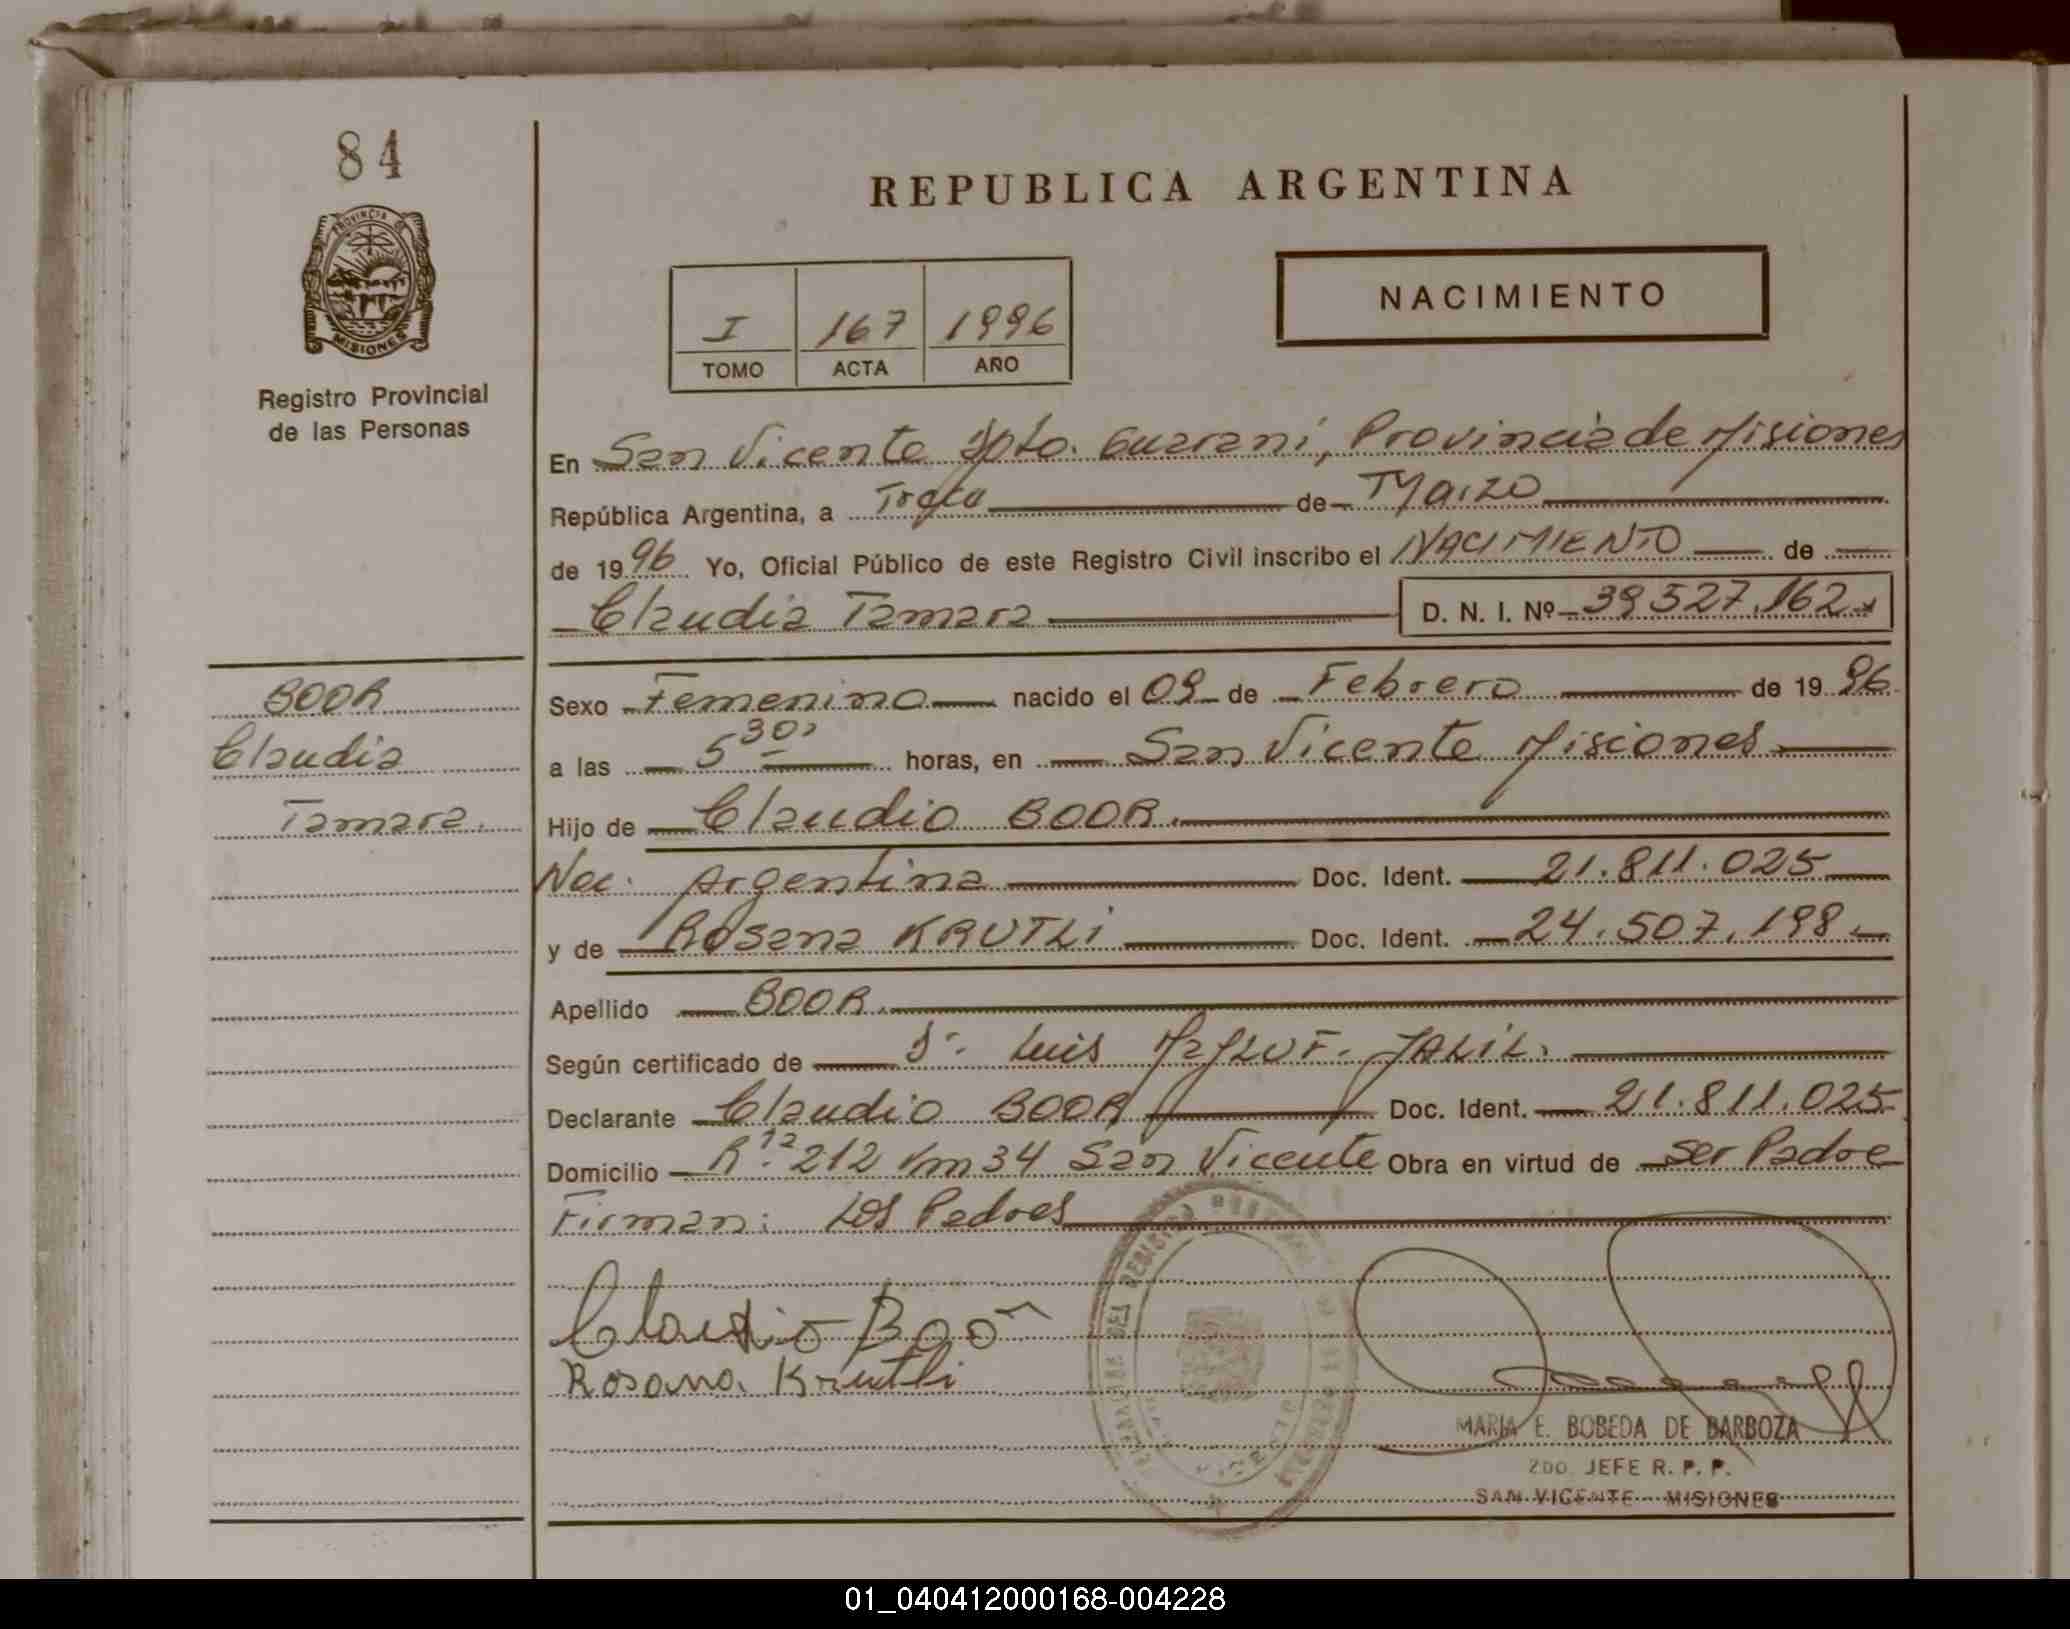 84
PROVINCIA DE
MISIONES
Registro Provincial
de las Personas
REPUBLICA ARGENTINA
I 167 1996
TOMO ACTA AÑO
NACIMIENTO
En San Vicente Dpto. Guaraní, Provincia de Misiones
República Argentina, a de Marzo
de 1996 Yo, Oficial Público de este Registro Civil inscribo el NACIMIENTO de
Claudia Tamara D. N. I. Nº 39.527.162
BOOR
Claudia
Tamara.
Sexo Femenino nacido el 09 de Febrero de 1996
a las 5 30 horas, en San Vicente Misiones
Hijo de Claudio BOOR.
Nac. Argentina Doc. Ident. 21.811.025
y de Rosana KRUTLI Doc. Ident. 24.507.198.
Apellido BOOR.
Según certificado de Dr. Luis JALIL.
Declarante Claudio BOOR Doc. Ident. 21.811.025
Domicilio R. 212 Km 34 San Vicente Obra en virtud de ser Padre
Firman: Los Padres
Claudio Boor
Rosana Krutli
MARIA E. BOBEDA DE BARBOZA
2DO. JEFE R. P. P.
SAN VICENTE - MISIONES
01_040412000168-004228